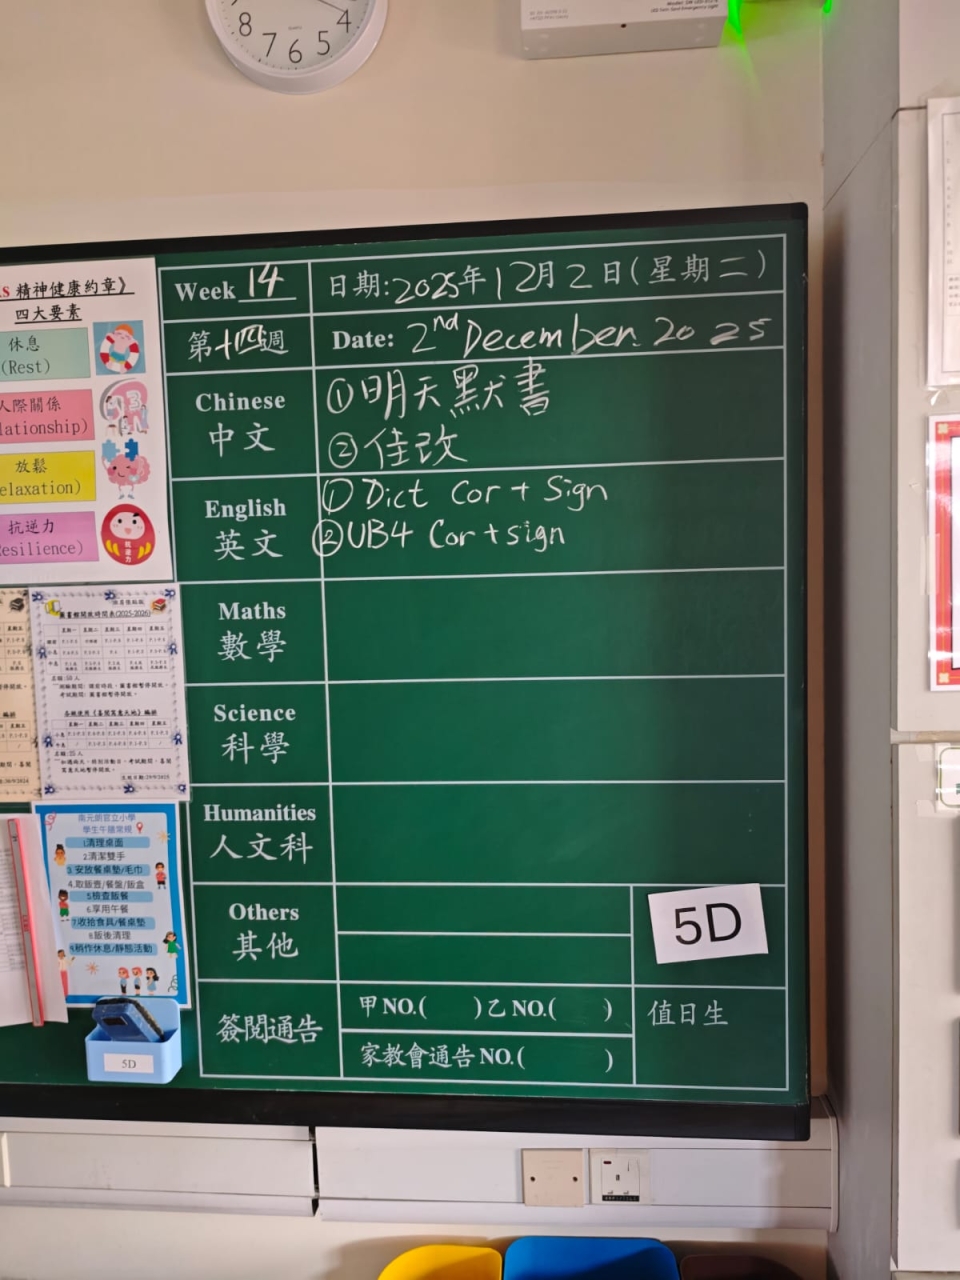 8 7 6 5 4
S 精神健康約章》
四大要素
休息
(Rest)
人際關係
放鬆
抗逆力
Week 14
日期:2025年12月2日(星期二)
第十四週
Date: 2nd December. 2025
Chinese
中文
①明天默書
②佳改
English
英文
① Dict Cor + Sign
②UB4 Cor + sign
Maths
數學
Science
科學
Humanities
人文科
Others
其他
5D
簽閱通告
甲NO.( )乙NO.( )
家教會通告NO.( )
值日生
圖書館開放時間表(2025-2026)
南元朗官立小學
學生午膳常規
1清理桌面
2.清潔雙手
3.安放餐桌墊/毛巾
4.取飯壺/餐盤/飯盒
5檢查飯餐
6.享用午餐
7.收拾食具/餐桌墊
8.飯後清理
9.稍作休息/靜態活動
5D